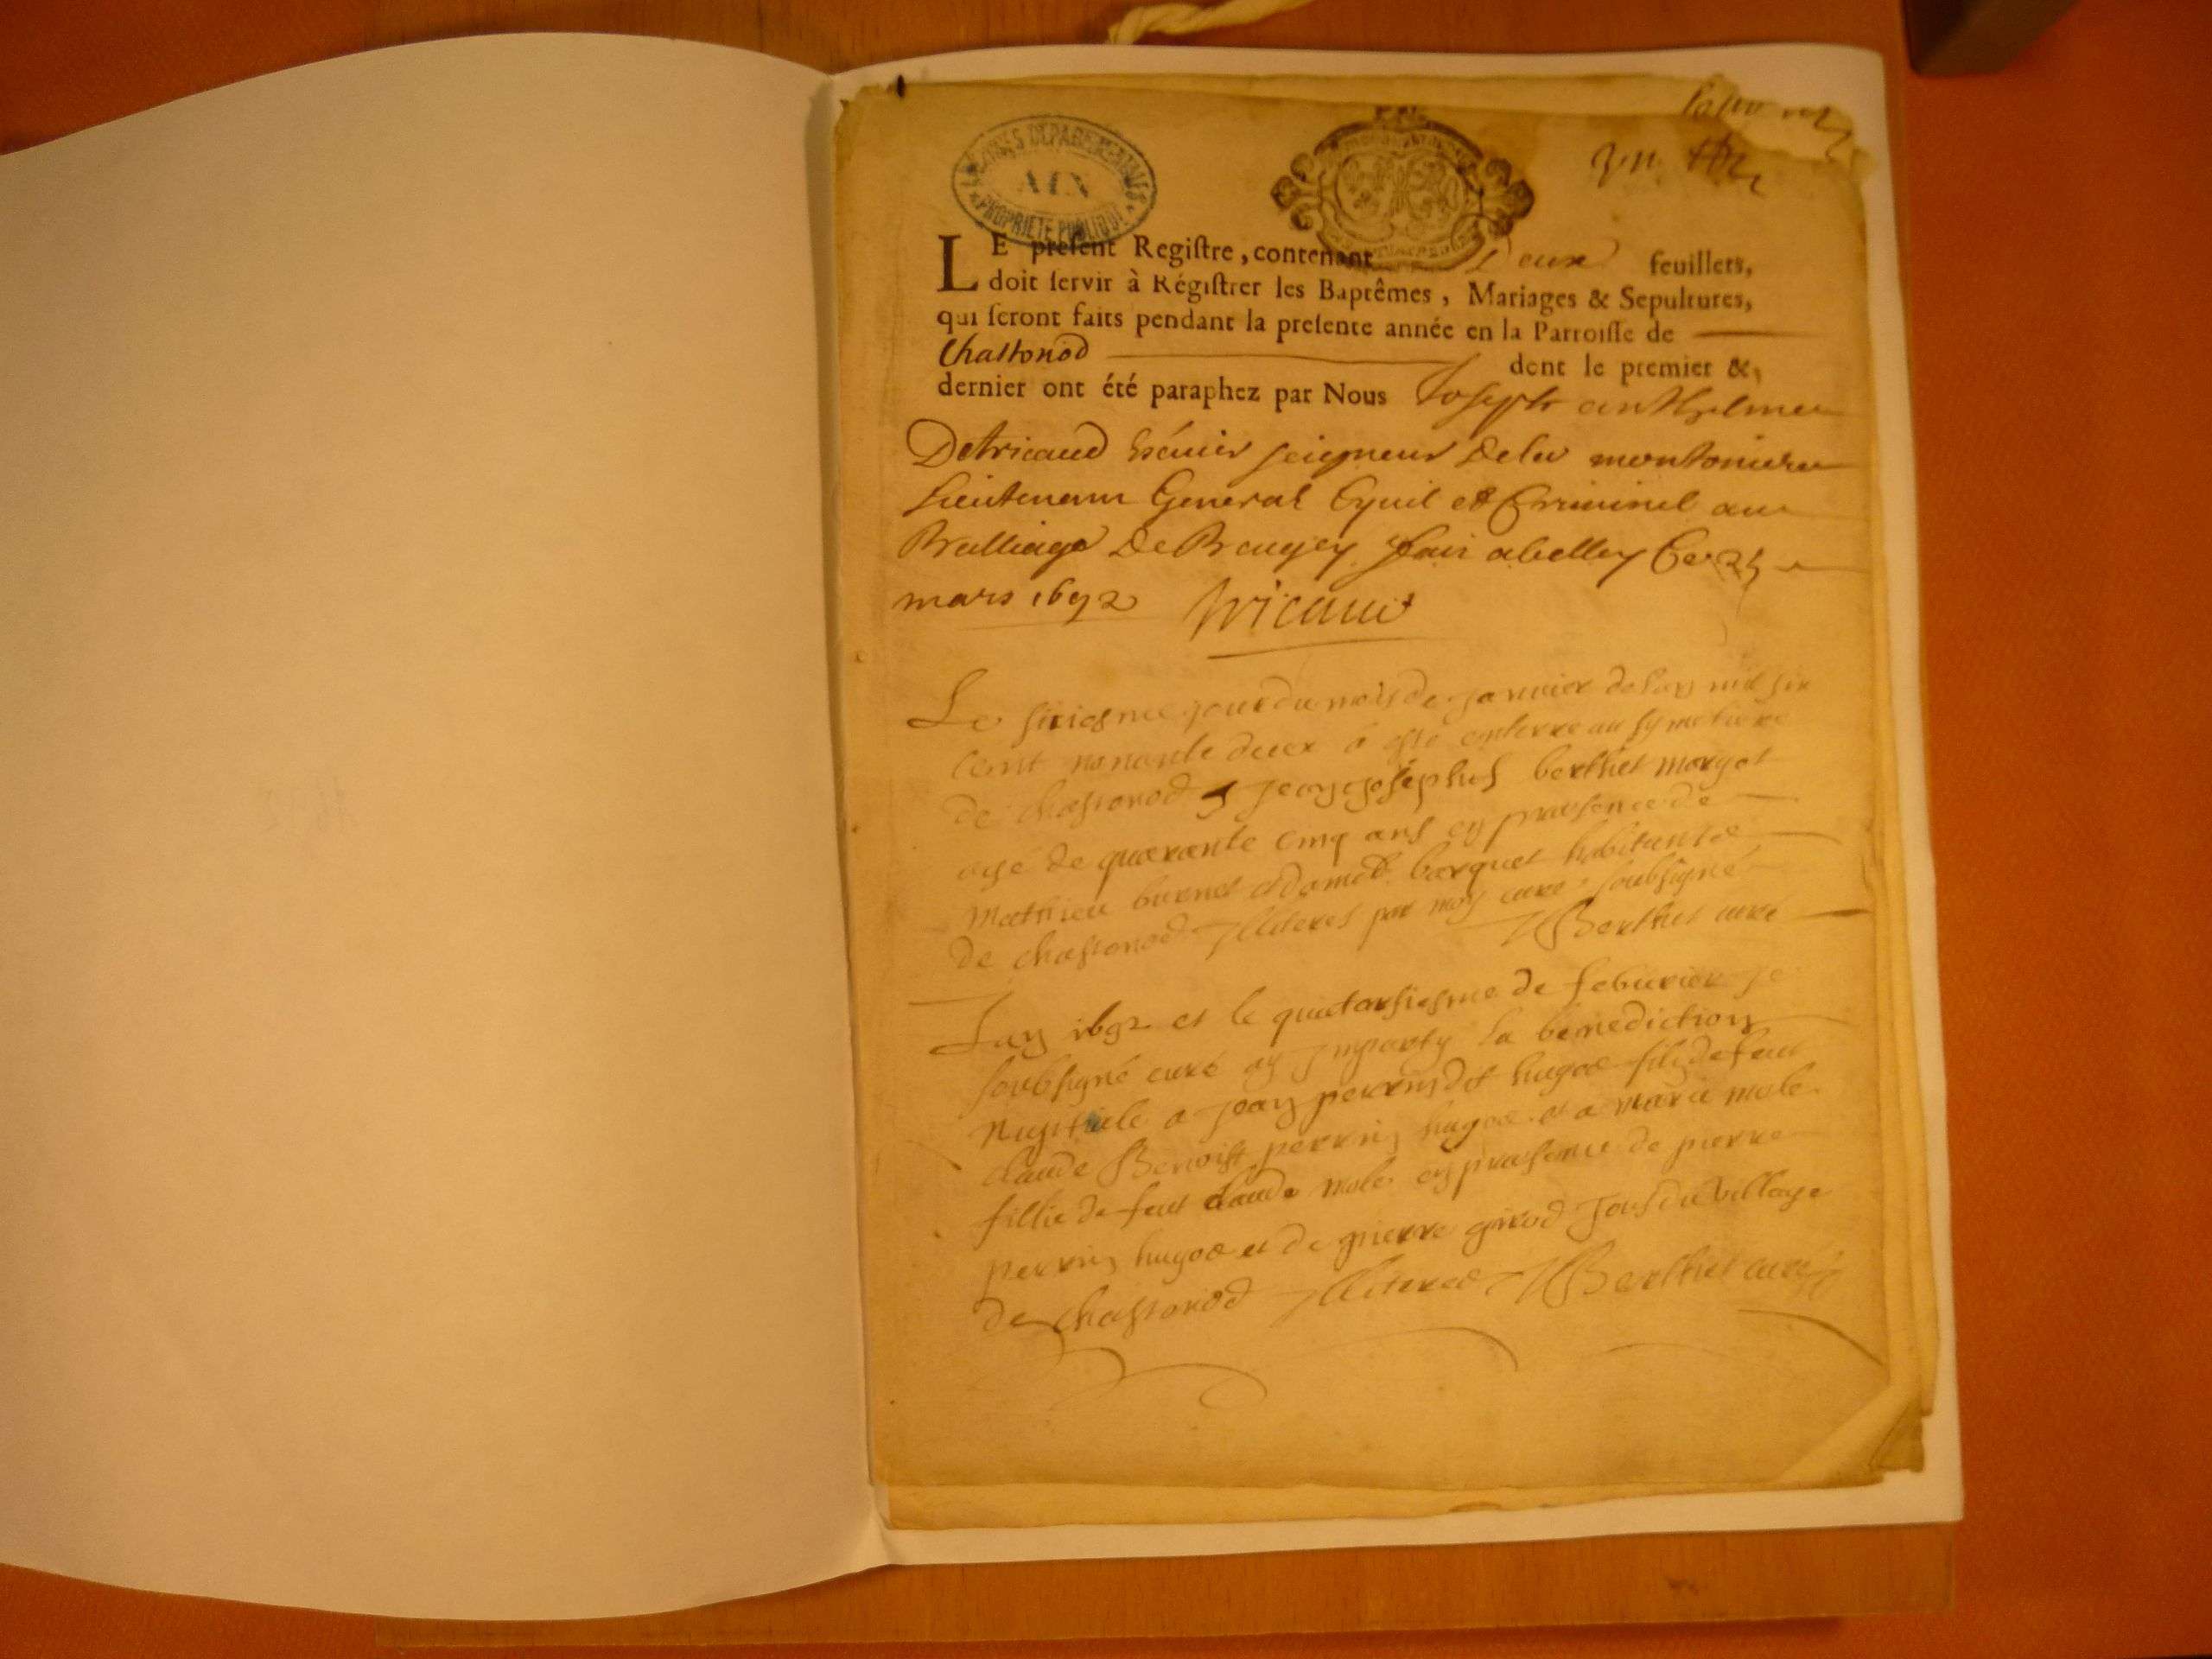 ARCHIVES DEPARTEMENTALES
AIN
PROPRIETE PUBLIQUE
LE preſent Regiſtre, contenant Deux feuillets,
doit ſervir à Régiſtrer les Baptêmes, Mariages & Sepultures,
qui ſeront faits pendant la preſente année en la Parroiſſe de
Chastonod dont le premier &
dernier ont été paraphez par Nous Joseph anthelme
Detricaud Escuier seigneur Dela montoniere
Lieutenant General Cyuil et Criminel au
Bailliage De Baugey fait a belley Ce 25
mars 1692 Tricaud
Le siziesme jour du mois de janvier de lan mil six
cent nonante deux a esté enterre au symetiere
de chastonod Jean josephus berthet margot
agé de quarante cinq ans en praesence de
Matthieu burnet et damé barquet habitants
de chastonod Illiteres par moy curé soubsigné
Berthet curé
Lan 1692 et le quatorsiesme de feburier je
soubsigné curé ay Imparty la benediction
nuptiale a Jean perrin dit hugoe fils de feu
claude Benoist perrin hugoe et a maria mole
fillie de feu claude mole en praesence de pierre
perrin hugoe et de pierre girod Tous du village
de chastonod Illiteres Berthet curé